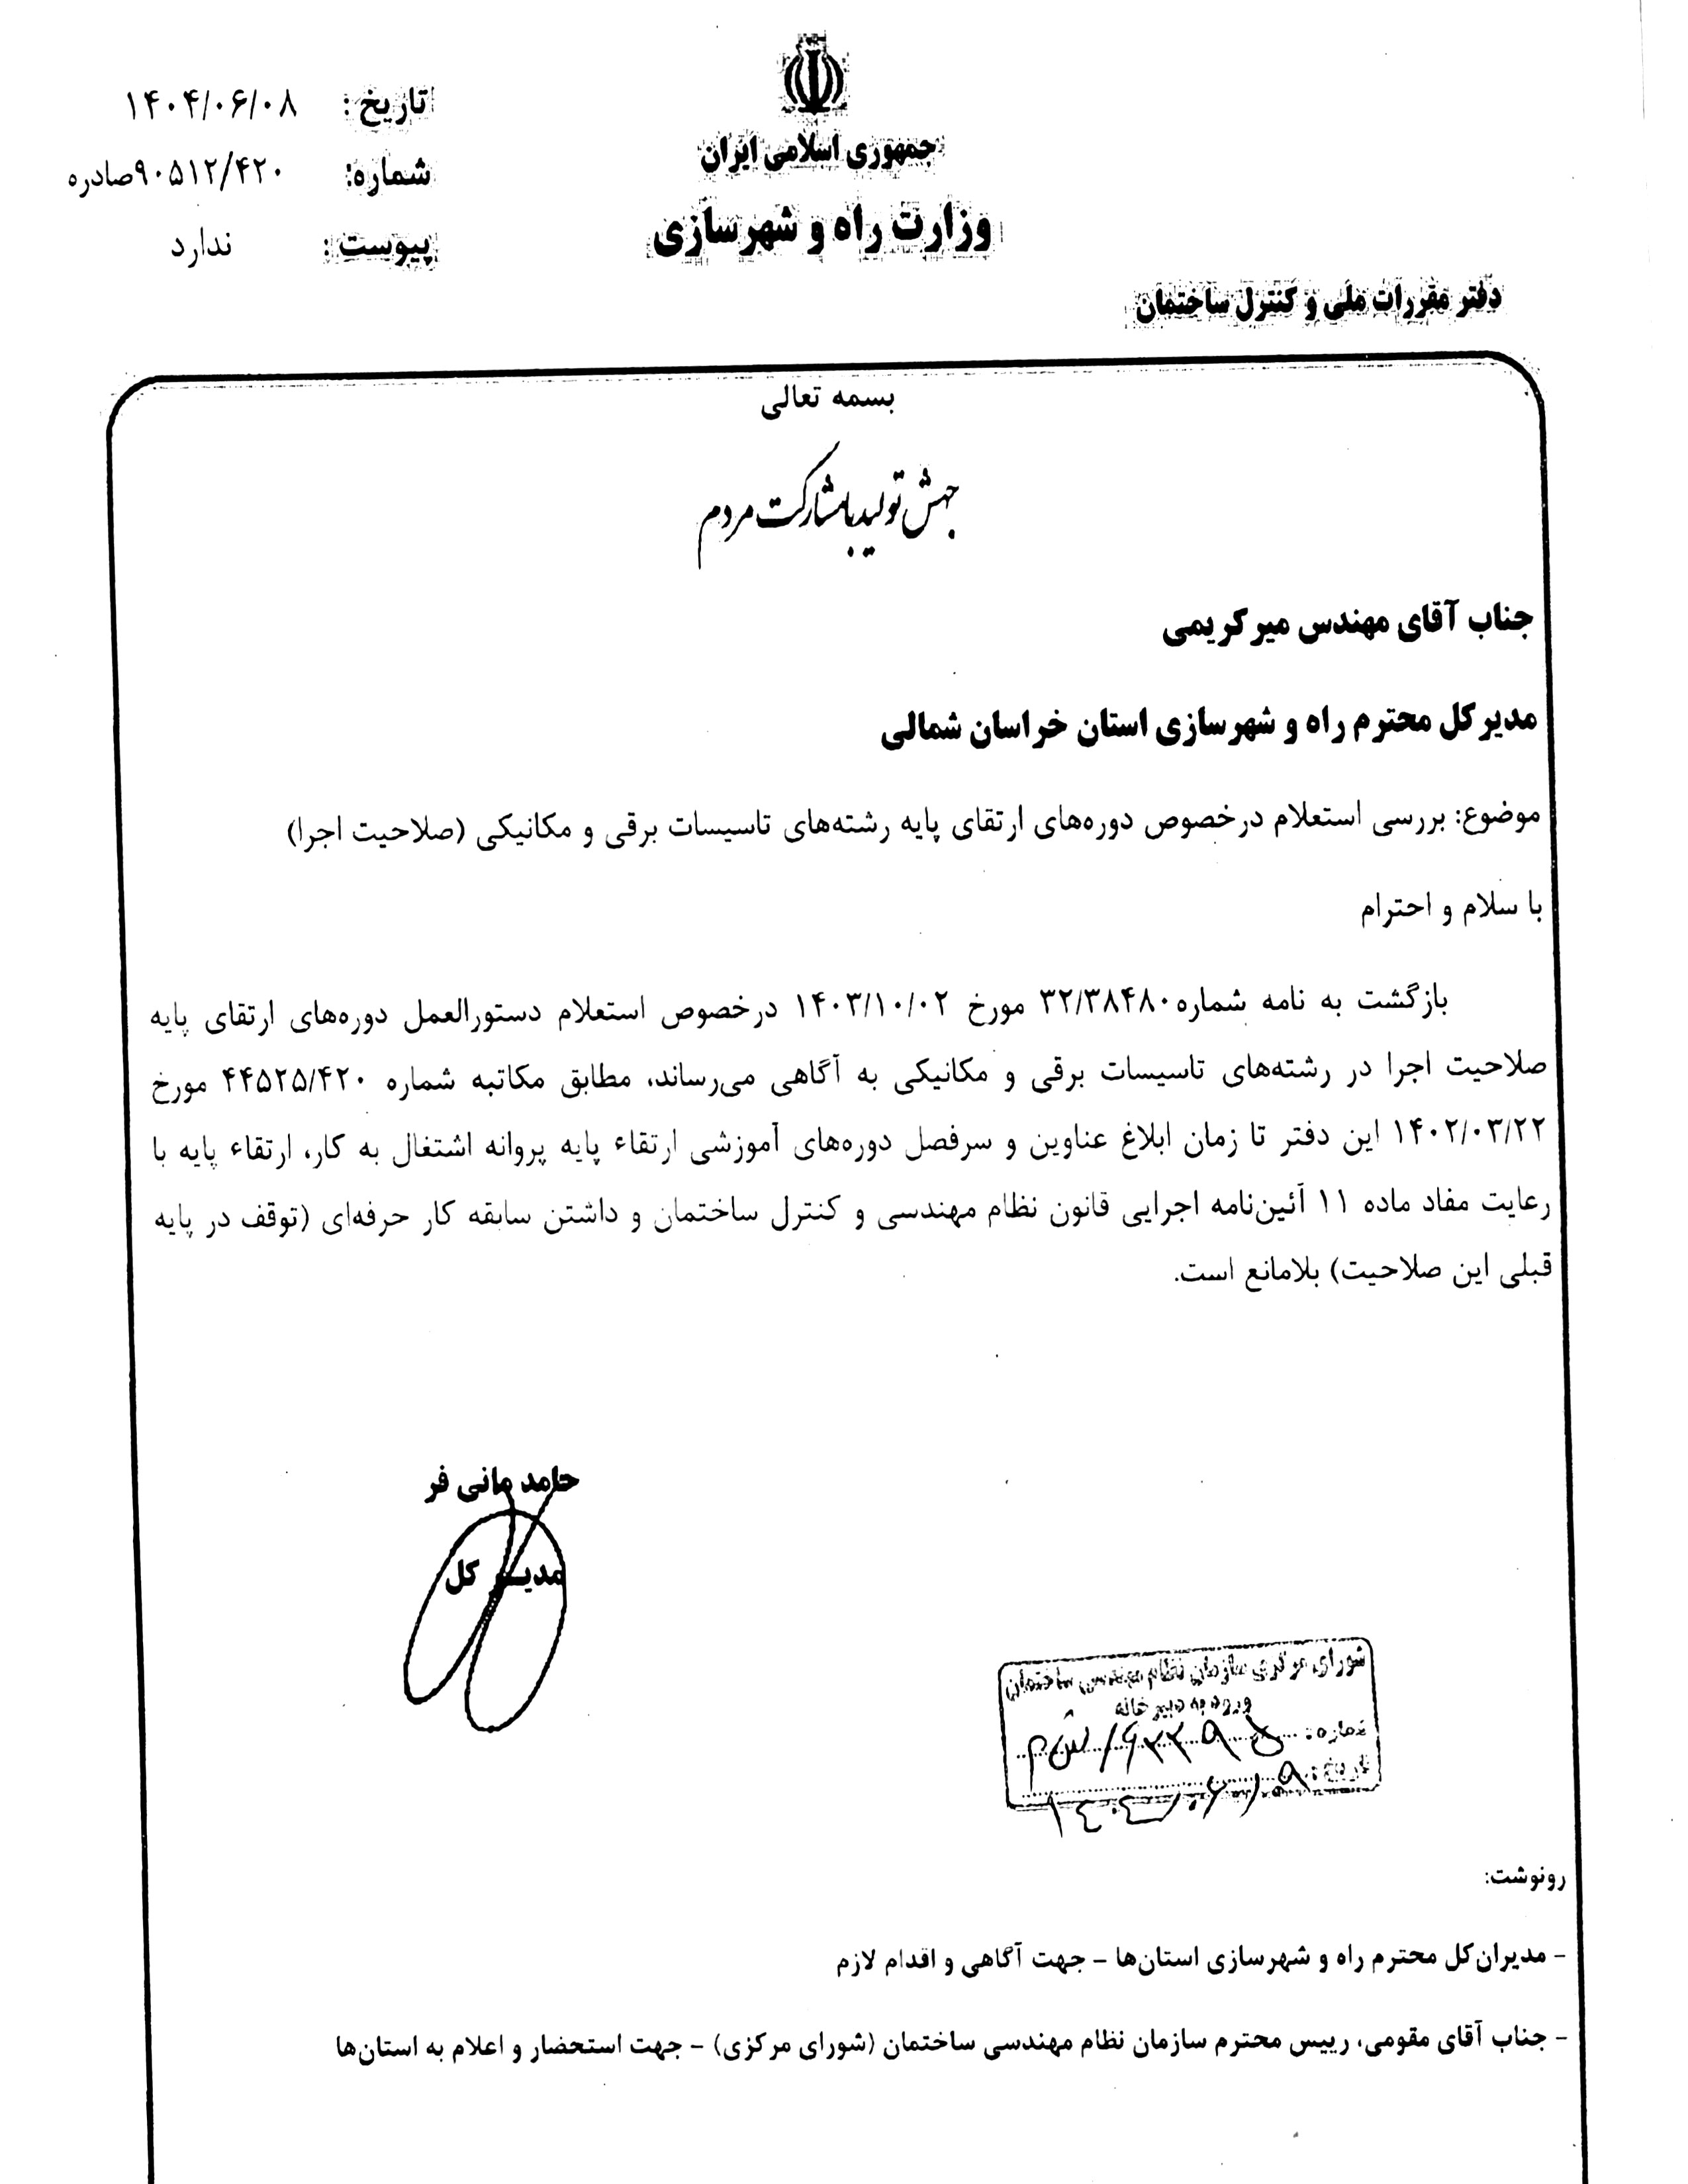 جمهوری اسلامی ایران
وزارت راه و شهرسازی
دفتر مقررات ملی و کنترل ساختمان
تاریخ: ۱۴۰۴/۰۶/۰۸
شماره: ۹۰۵۱۲/۴۲۰صادره
پیوست: ندارد
بسمه تعالی
جهش تولید با مشارکت مردم
جناب آقای مهندس میرکریمی
مدیرکل محترم راه و شهرسازی استان خراسان شمالی
موضوع: بررسی استعلام درخصوص دوره‌های ارتقای پایه رشته‌های تاسیسات برقی و مکانیکی (صلاحیت اجرا)
با سلام و احترام
بازگشت به نامه شماره ۳۲/۳۸۴۸۰ مورخ ۱۴۰۳/۱۰/۰۲ درخصوص استعلام دستورالعمل دوره‌های ارتقای پایه
صلاحیت اجرا در رشته‌های تاسیسات برقی و مکانیکی به آگاهی می‌رساند، مطابق مکاتبه شماره ۴۴۵۲۵/۴۲۰ مورخ
۱۴۰۲/۰۳/۲۲ این دفتر تا زمان ابلاغ عناوین و سرفصل دوره‌های آموزشی ارتقاء پایه پروانه اشتغال به کار، ارتقاء پایه با
رعایت مفاد ماده ۱۱ آئین‌نامه اجرایی قانون نظام مهندسی و کنترل ساختمان و داشتن سابقه کار حرفه‌ای (توقف در پایه
قبلی این صلاحیت) بلامانع است.
حامد مانی فر
مدیر کل
شورای مرکزی سازمان نظام مهندسی ساختمان
ورود به دبیرخانه
شماره: /ش م
تاریخ: ۱۴۰۴/۰۶/۰۹
رونوشت:
- مدیران‌کل محترم راه و شهرسازی استان‌ها - جهت آگاهی و اقدام لازم
- جناب آقای مقومی، رییس محترم سازمان نظام مهندسی ساختمان (شورای مرکزی) - جهت استحضار و اعلام به استان‌ها